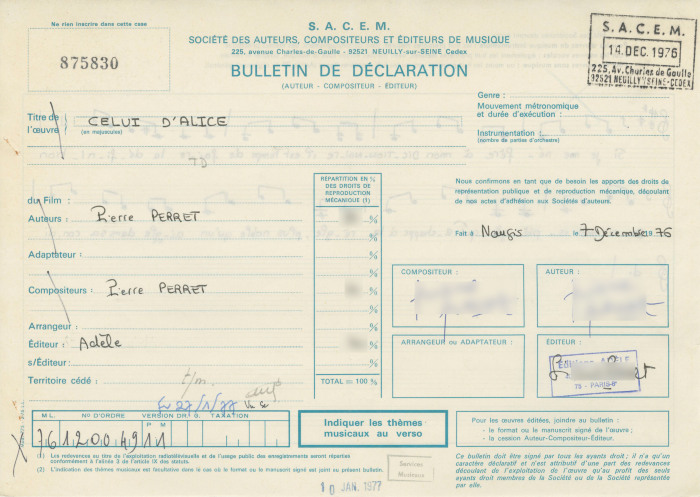 Ne rien inscrire dans cette case
875830
S. A. C. E. M.
SOCIÉTÉ DES AUTEURS, COMPOSITEURS ET ÉDITEURS DE MUSIQUE
225, avenue Charles-de-Gaulle - 92521 NEUILLY-sur-SEINE Cedex
BULLETIN DE DÉCLARATION
(AUTEUR - COMPOSITEUR - ÉDITEUR)
S. A. C. E. M.
14 DEC. 1976
225, Av. Charles de Gaulle
92521 NEUILLY S/SEINE-CEDEX
Genre :
Mouvement métronomique
et durée d'exécution :
Instrumentation :
(nombre de parties d'orchestre)
Titre de
l'œuvre
(en majuscules)
CELUI D'ALICE
TD
du Film :
Auteurs : Pierre PERRET
Adaptateur :
Compositeurs : Pierre PERRET
Arrangeur :
Éditeur : Adèle
s/Éditeur :
Territoire cédé :
RÉPARTITION EN %
DES DROITS DE
REPRODUCTION
MÉCANIQUE (1)
%
%
%
%
%
%
%
TOTAL = 100 %
Nous confirmons en tant que de besoin les apports des droits de
représentation publique et de reproduction mécanique, découlant
de nos actes d'adhésion aux Sociétés d'auteurs.
Fait à Nangis le 7 Décembre 1976
COMPOSITEUR :
AUTEUR :
ARRANGEUR ou ADAPTATEUR :
ÉDITEUR :
ADÈLE
75 - PARIS-6e
27/1/77
M L. N° D'ORDRE VERSION DR. G. TAXATION
P M
7612004911
Indiquer les thèmes
musicaux au verso
Pour les œuvres éditées, joindre au bulletin :
- le format ou le manuscrit signé de l'œuvre ;
- la cession Auteur-Compositeur-Éditeur.
(1) Les redevances au titre de l'exploitation radiotélévisuelle et de l'usage public des enregistrements seront réparties
conformément à l'article 2 de l'article IX des statuts.
(2) L'indication des thèmes musicaux est facultative dans le cas où le format ou le manuscrit signé est joint au présent bulletin.
Services
Musicaux
10 JAN. 1977
Ce bulletin doit être signé par tous les ayants droit ; il n'a qu'un
caractère déclaratif et n'est attributif d'une part des redevances
découlant de l'exploitation de l'œuvre qu'au profit des seuls
ayants droit membres de la Société ou de la Société représentée
par elle.